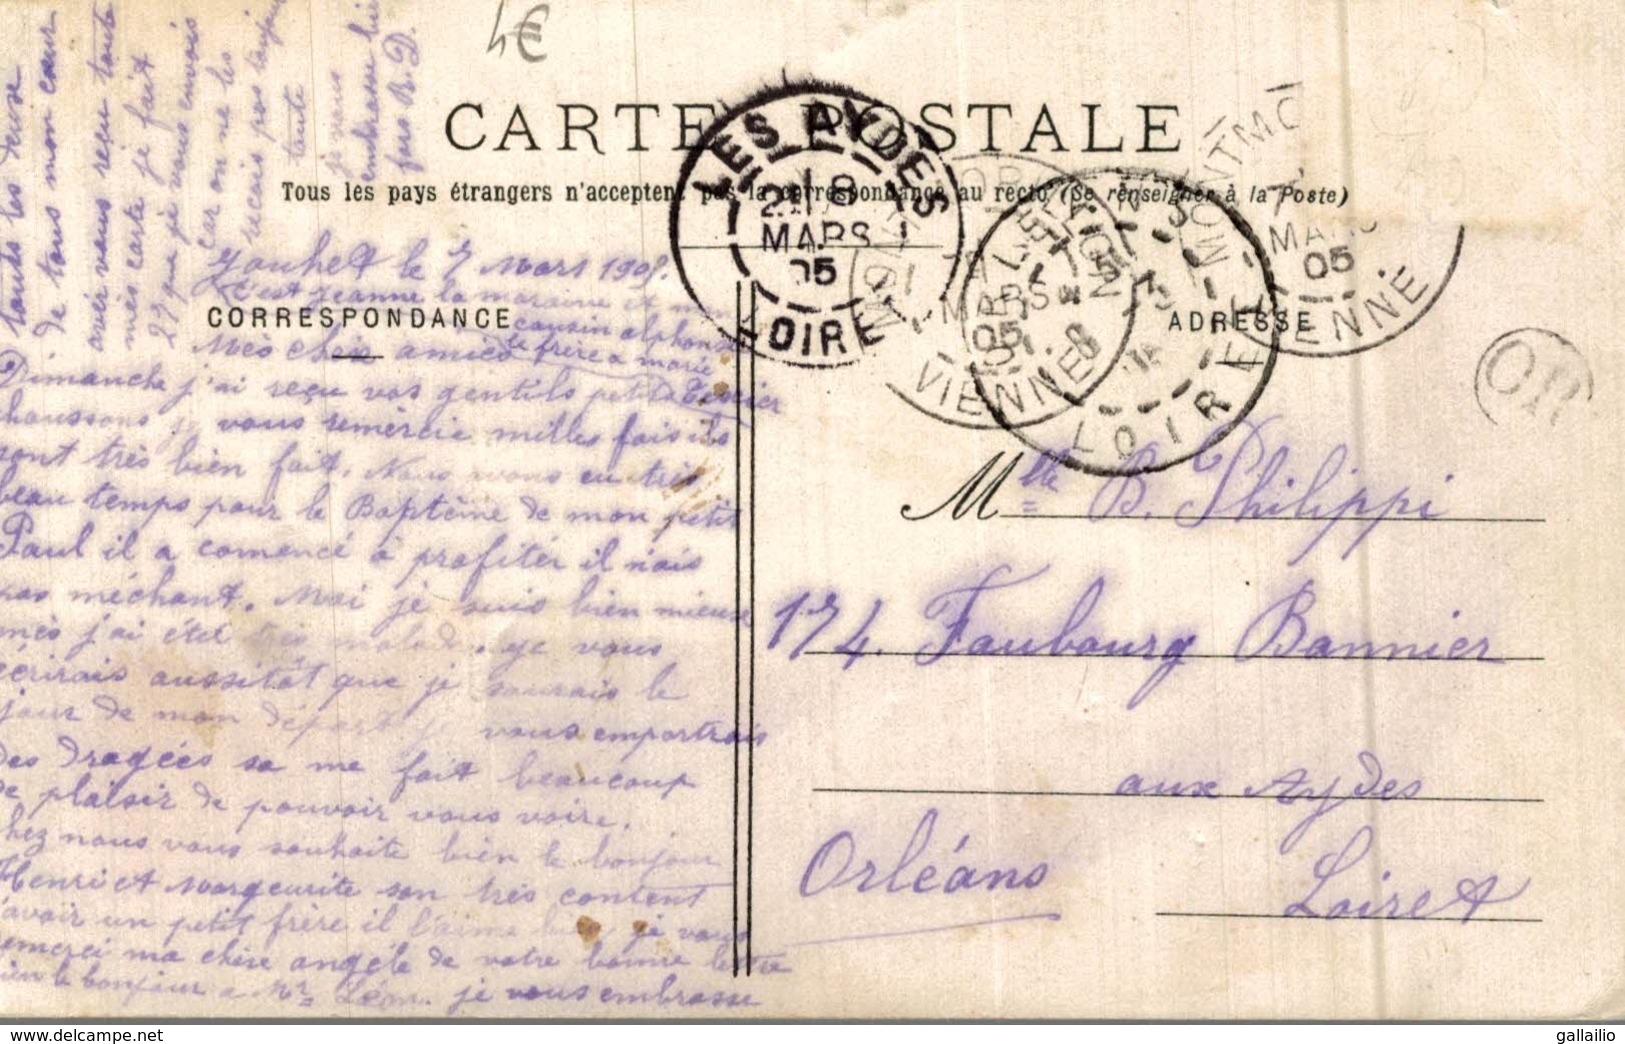 4€
CARTE POSTALE
Tous les pays étrangers n'acceptent pas la correspondance au recto (Se renseigner à la Poste)
CORRESPONDANCE
ADRESSE
LES AYDES
8
MARS
05
LOIRET
MONTMO
MARS
05
VIENNE
VIENNE
LOIRET
OR
Jouhet le 7 Mars 1905.
c'est Jeanne la maraine et mon
cousin alphonse
le frère a marie
Tessier
Mes cheis amies
Dimanche j'ai reçu vos gentils petits
chaussons je vous remercie milles fois ils
sont très bien fait. Nous avons eu très
beau temps pour le Baptême de mon petit
Paul il a comencé à profiter il n'ais
pas méchant. Moi je suis bien mieuse
mes j'ai étét très malade. je vous
écrirais aussitôt que je saurais le
jour de mon départ je vous emportrais
des dragées sa me fait beaucoup
de plaisir de pouvoir vous voire.
chez nous vous souhaite bien le bonjour
Henri et Morgeurite son très content
d'avoir un petit frère il l'aime bien je vous
remerci ma chère angéle de votre bonne lettre
bien le bonjour a Mr Léon. je vous embrasse
touts les deuse
de tous mon cœur
avier vous reçu toute
mes carte je fait
27 que je vous envois
car on ne les
recois pas toujour
toute
je vous
embrasse bie
fors B. D.
Mlle B. Philippi
174. Faubourg Bannier
aux Aydes
Orléans
Loiret
gallailio